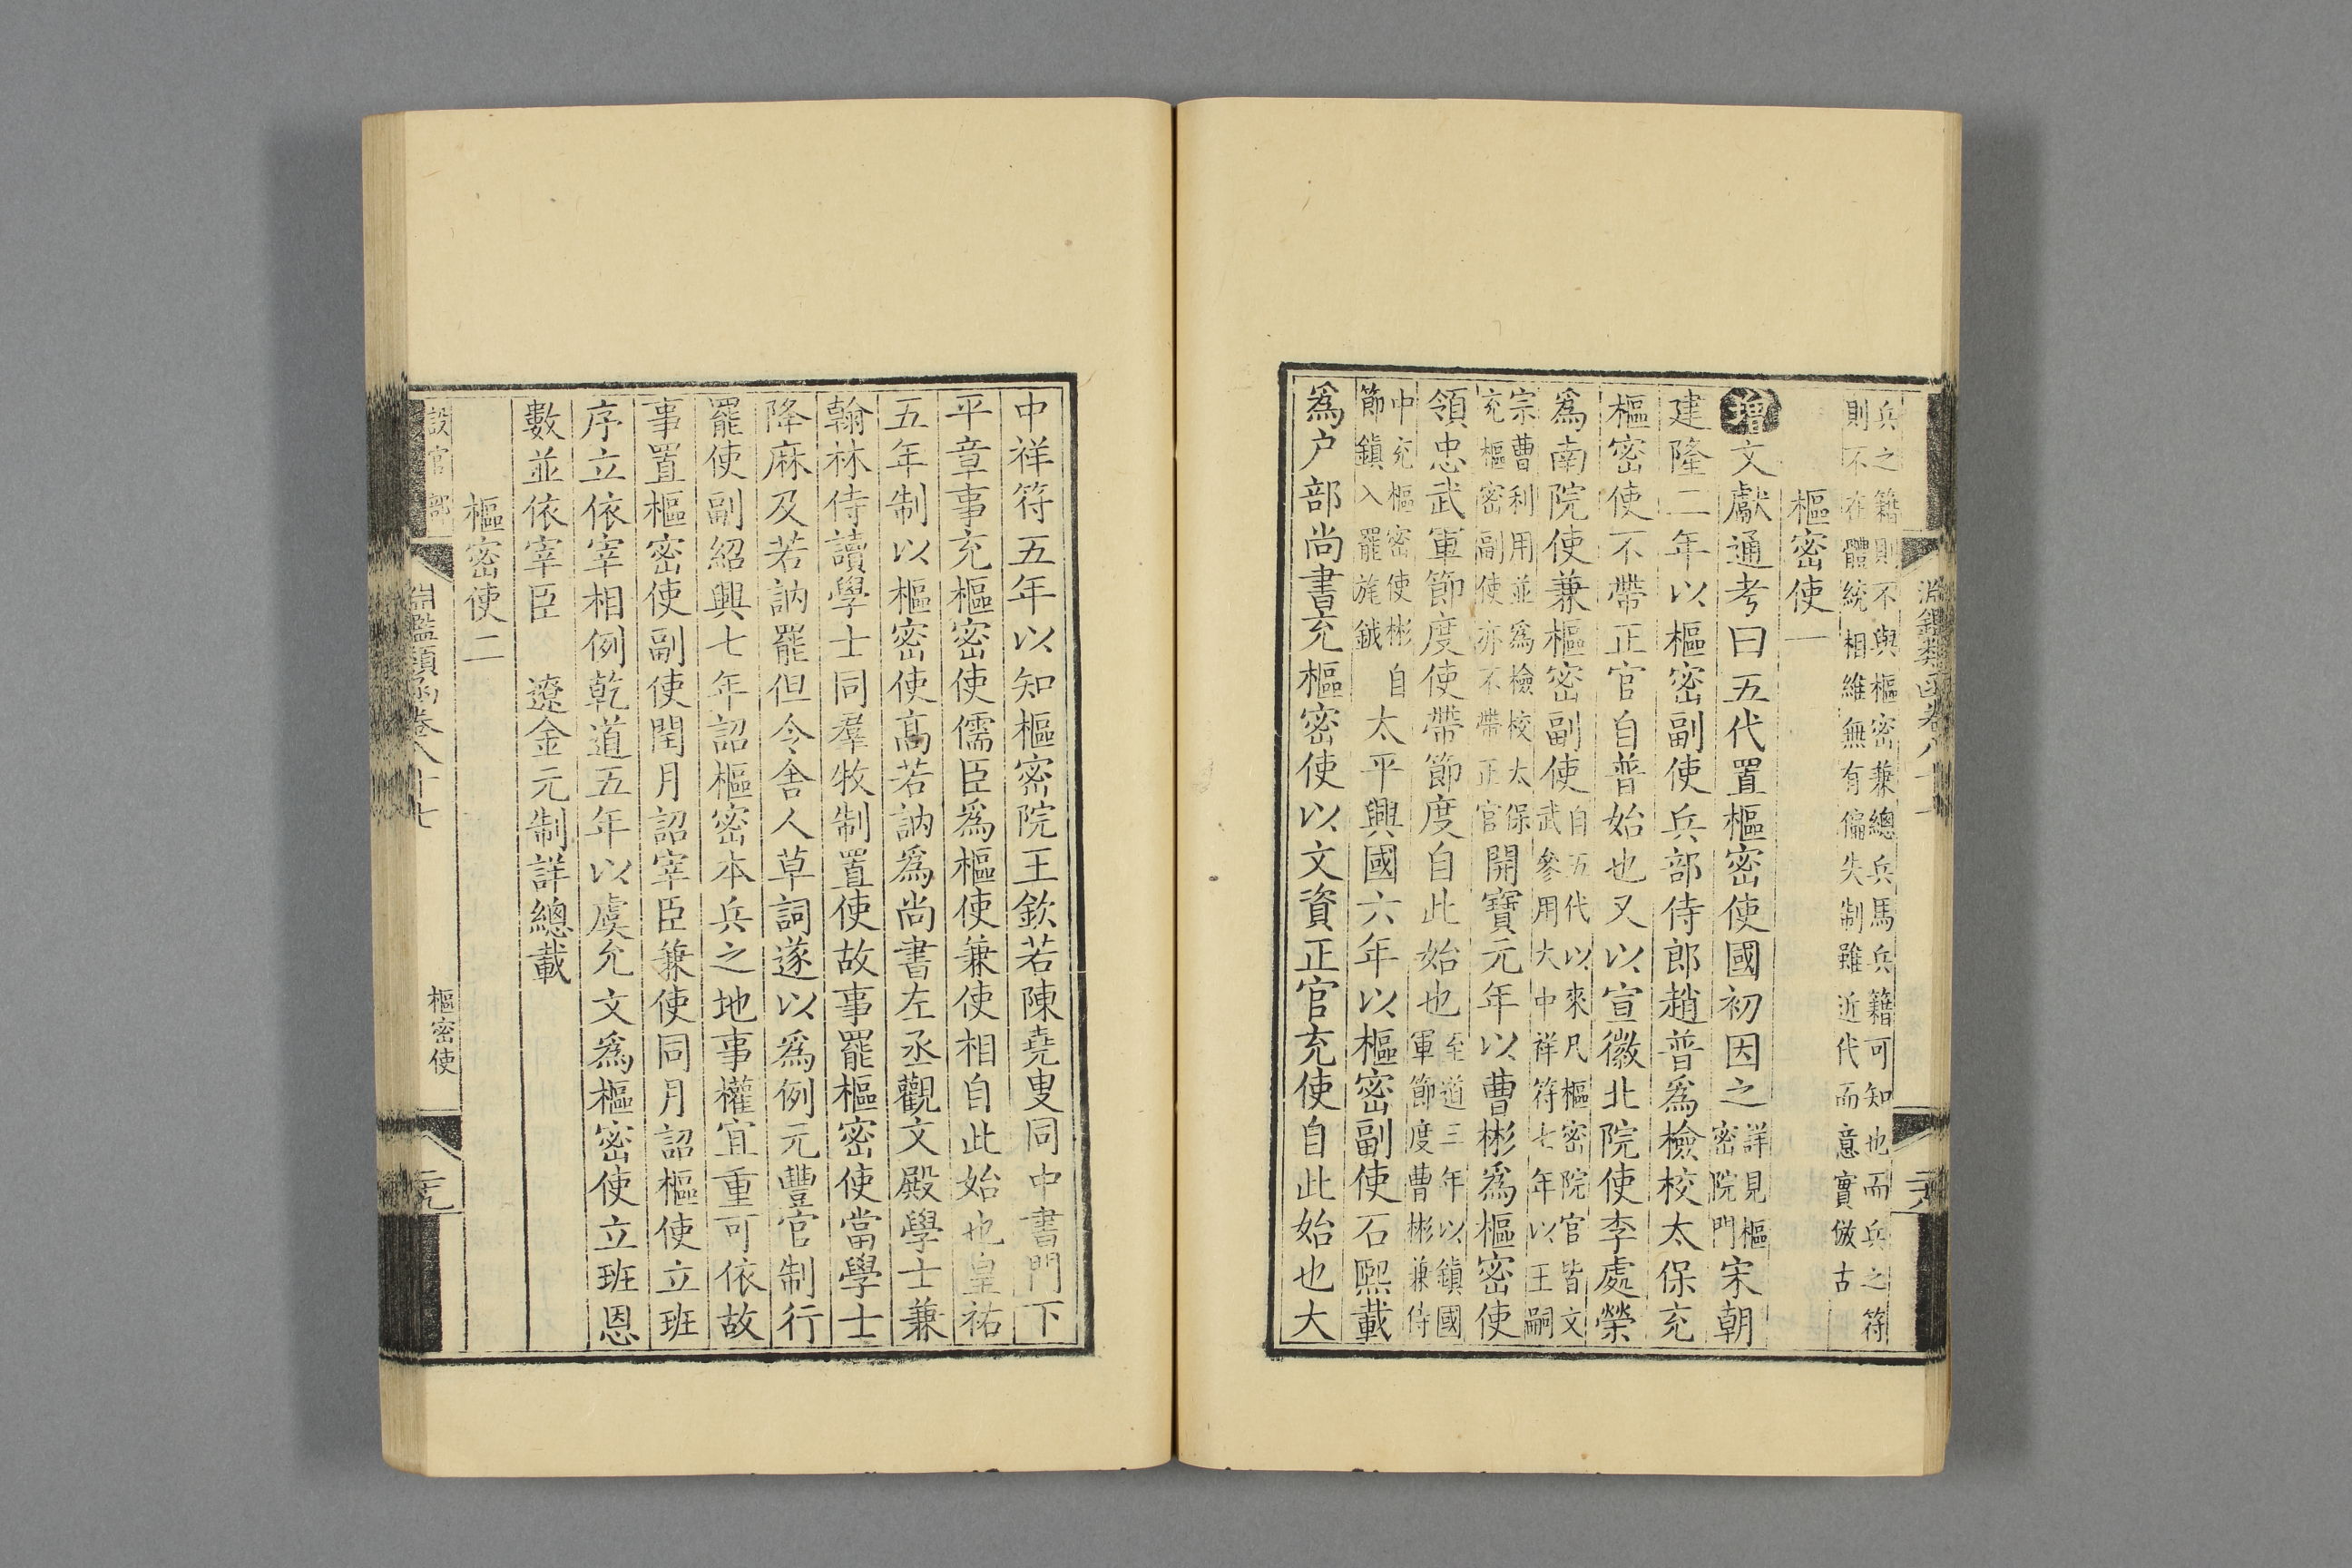 兵之籍則不與樞密兼總兵馬兵籍可知也而兵之符
則不在體統相維無有偏失制雖近代而意實倣古
樞密使一
增文獻通考曰五代置樞密使國初因之詳見樞密院門宋朝
建隆二年以樞密副使兵部侍郎趙普爲檢校太保充
樞密使不帶正官自普始也又以宣徽北院使李處榮
爲南院使兼樞密副使自五代以來凡樞密院官皆文武參用大中祥符七年以王嗣
宗曹利用並爲檢校太保充樞密副使亦不帶正官開寶元年以曹彬爲樞密使
領忠武軍節度使帶節度自此始也至道三年以鎭國軍節度曹彬兼侍
中充樞密使彬自節鎭入罷旄鉞太平興國六年以樞密副使石熙載
爲户部尚書充樞密使以文資正官充使自此始也大
中祥符五年以知樞密院王欽若陳堯叟同中書門下
平章事充樞密使儒臣爲樞使兼使相自此始也皇祐
五年制以樞密使高若訥爲尚書左丞觀文殿學士兼
翰林侍讀學士同羣牧制置使故事罷樞密使當學士
降麻及若訥罷但令舍人草詞遂以爲例元豐官制行
罷使副紹興七年詔樞密本兵之地事權宜重可依故
事置樞密使副使閏月詔宰臣兼使同月詔樞使立班
序立依宰相例乾道五年以虞允文爲樞密使立班恩
數並依宰臣 遼金元制詳總載
樞密使二
設官部 淵鑑類函卷八十七 樞密使 二九